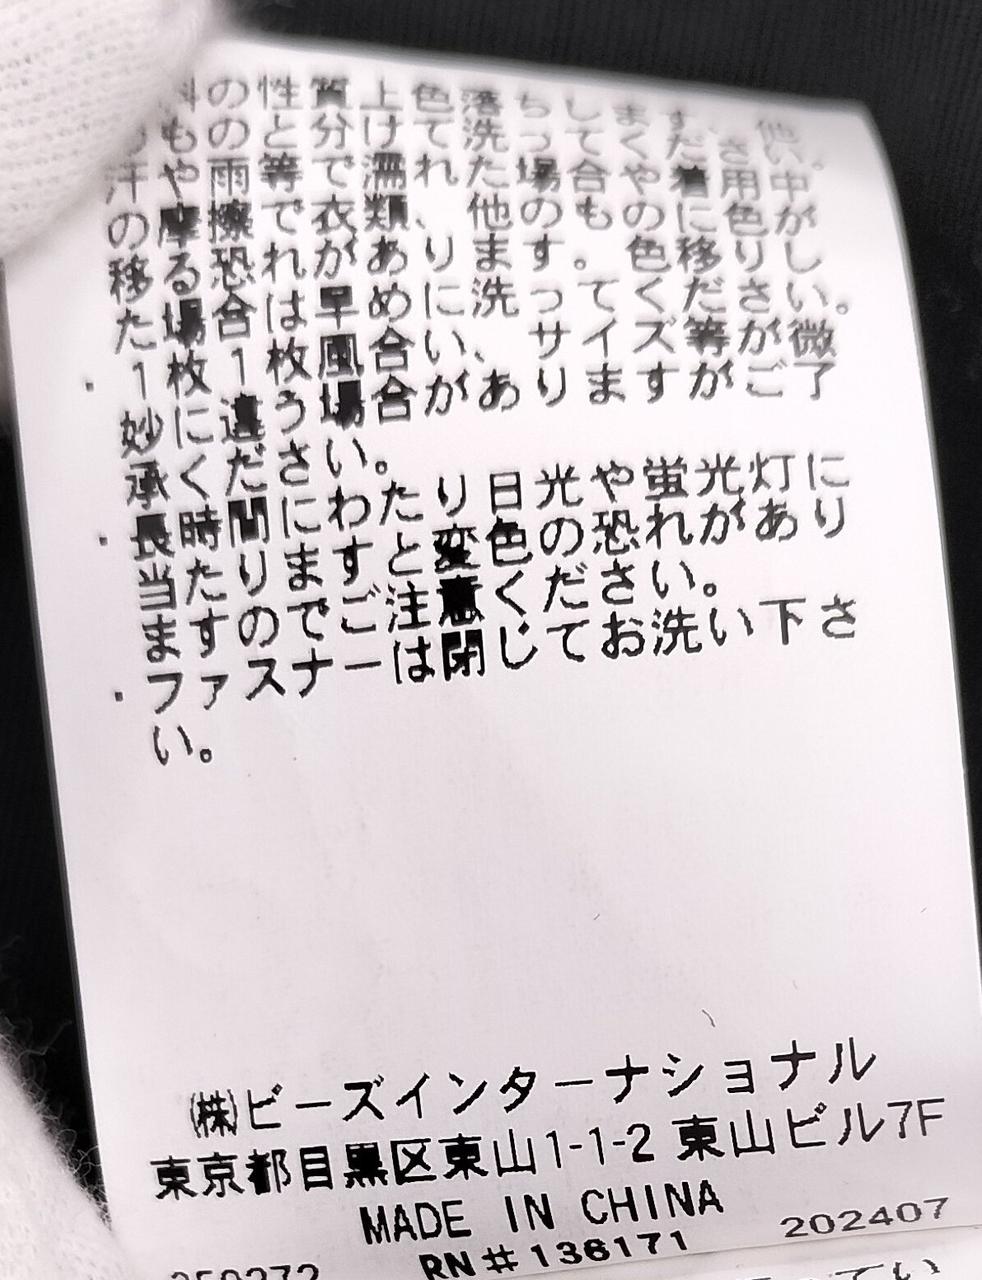 料の性質上色落ちします、他
もの と分け て洗っ てくださ い。
汗や雨等で濡れた場合や着用中
の摩擦で衣類、他のものに色が
移る恐れがあります。色移りし
た場合は早めに洗ってください。
・1枚1枚風合い、サイズ等が微
妙に違う場合がありますがご了
承くださ い。
・長時間にわたり日光や蛍光灯に
当たりますと変色の恐れがあり
ますのでご注意ください。
・ファスナーは閉じてお洗い下さ
い。
㈱ビーズインターナショナル
東京都目黒区東山1-1-2 東山ビル7F
MADE IN CHINA
RN#136171
202407